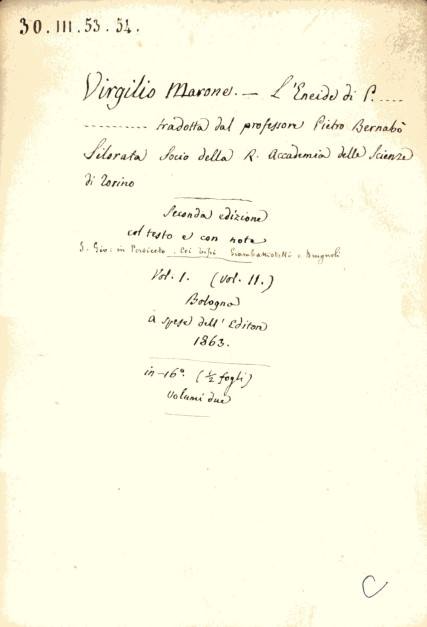 30.III.53.54.
Virgilio Marone. — L'Eneide di P. ....
............ tradotta dal professore Pietro Bernabò
Silorata Socio della R. Accademia delle Scienze
di Torino
Seconda edizione
col testo e con note
S. Gio: in Persiceto. Coi tipi Giambattistelli e Brugnoli
Vol. I. (Vol. II.)
Bologna
A spese dell'Editore
1863.
in-16°. (½ fogli)
Volumi due
C